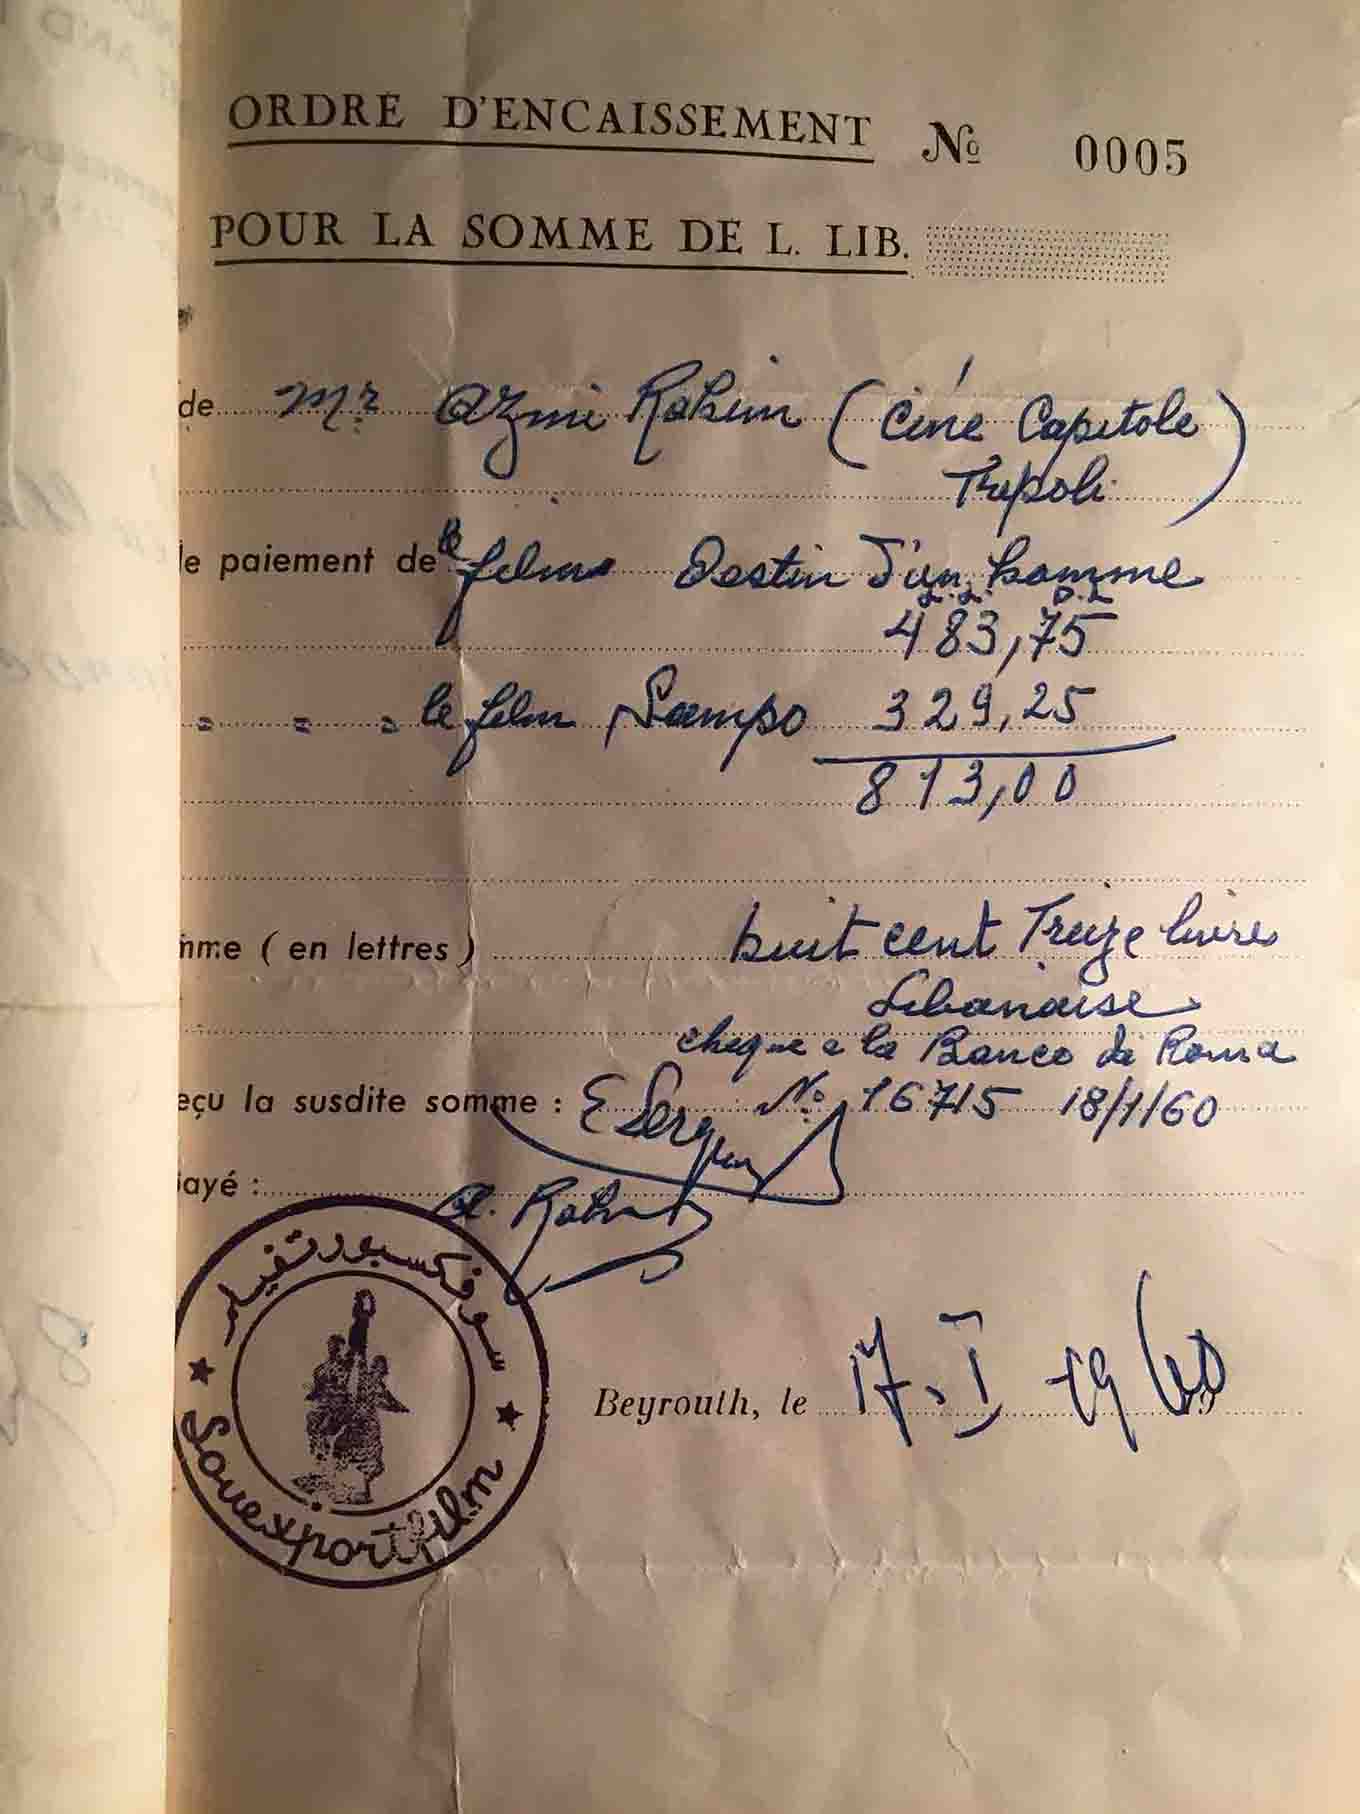 ORDRE D'ENCAISSEMENT Nº 0005
POUR LA SOMME DE L. LIB.
de Mr. Azmi Rahim (Ciné Capitole)
Tripoli
le paiement de le films Destin d'un homme
L.L. P.L
483,75
" " " le film Sampo 329,25
813,00
mme (en lettres) huit cent Treize livres
Libanaise
cheque a la Banco di Roma
eçu la susdite somme : Nº 16715 18/1/60
ayé : A. Rahim
سوفكسبورتفيلم
Beyrouth, le 17. I 1960
Sovexportfilm